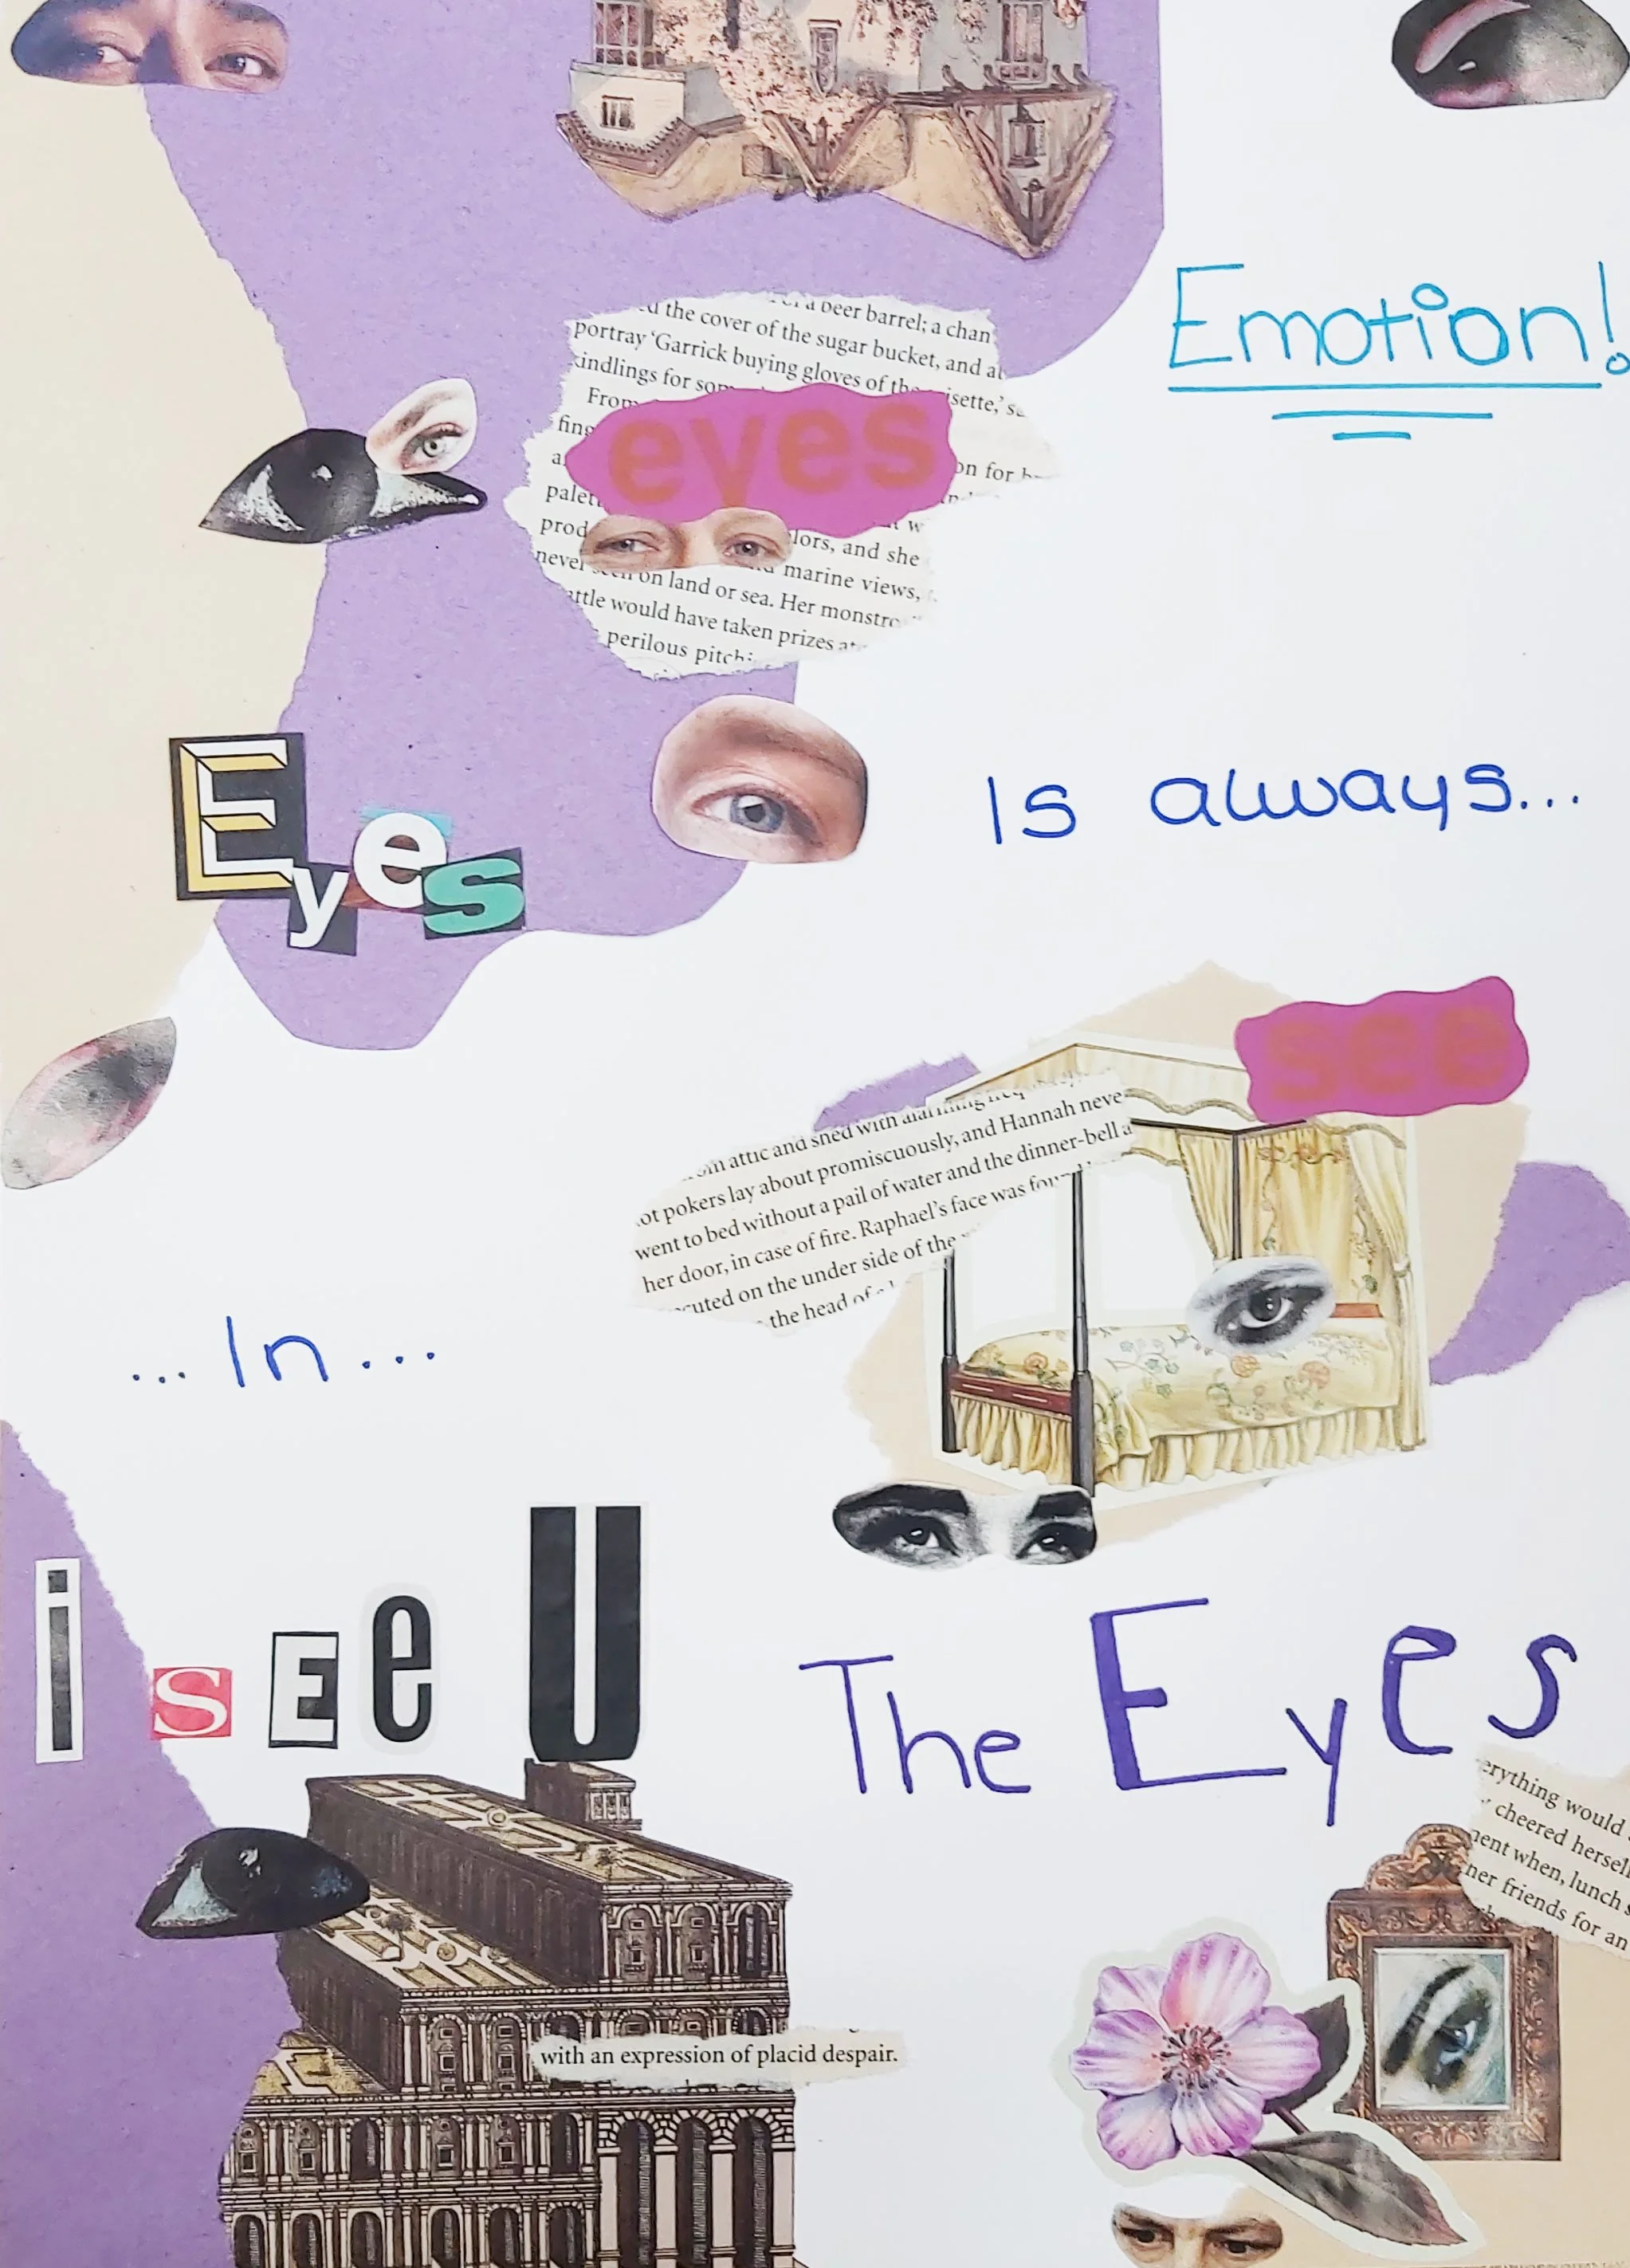 d the cover of the sugar bucket, and a
a beer barrel; a chan
portray ‘Garrick buying gloves of the isette,’
kindlings for
From
eyes
on for
prod lors, and she
never seen on land or sea. Her monstro
marine views,
attle would have taken prizes at
perilous pitch
Emotion!
Eyes
Is always...
see
om attic and shed with alarming
ot pokers lay about promiscuously, and Hannah neve
went to bed without a pail of water and the dinner-bell a
her door, in case of fire. Raphael’s face was fou
cuted on the under side of the
the head of
...In...
i SEe U
The Eyes
erything would
cheered hersel
ment when, lunch s
her friends for an
with an expression of placid despair.